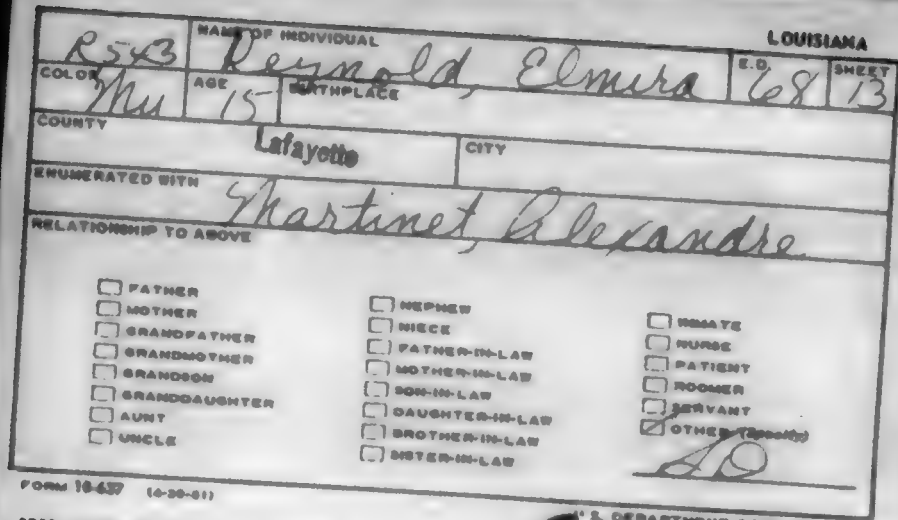 LOUISIANA
R543 NAME OF INDIVIDUAL Reynold, Elmira E.D. 68 SHEET 13
COLOR Mu AGE 15 BIRTHPLACE
COUNTY Lafayette CITY
ENUMERATED WITH Martinet, Alexandre
RELATIONSHIP TO ABOVE
FATHER
MOTHER
GRANDFATHER
GRANDMOTHER
GRANDSON
GRANDDAUGHTER
AUNT
UNCLE
NEPHEW
NIECE
FATHER-IN-LAW
MOTHER-IN-LAW
SON-IN-LAW
DAUGHTER-IN-LAW
BROTHER-IN-LAW
SISTER-IN-LAW
INMATE
NURSE
PATIENT
ROOMER
SERVANT
OTHER (Specify)
SD
FORM 10-637 (6-30-61)
U.S. DEPARTMENT